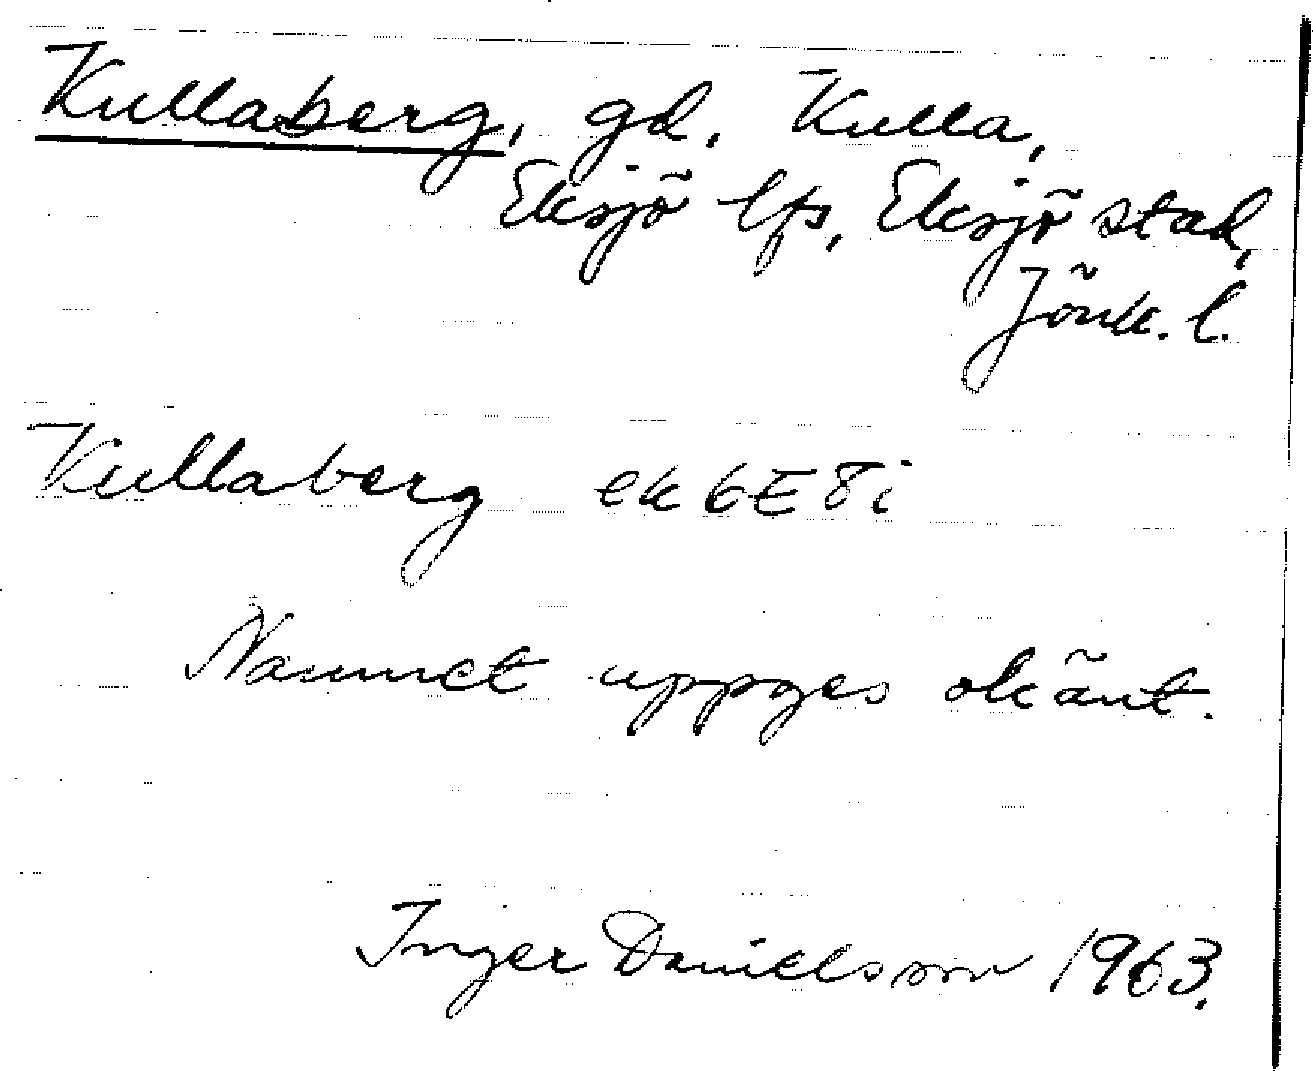 Kullaberg, gd. Kulla,
Eksjö lfs, Eksjö stad,
Jönk. l.
Kullaberg ek 6E 8i
Namnet uppges okänt.
Inger Danielsson 1963.